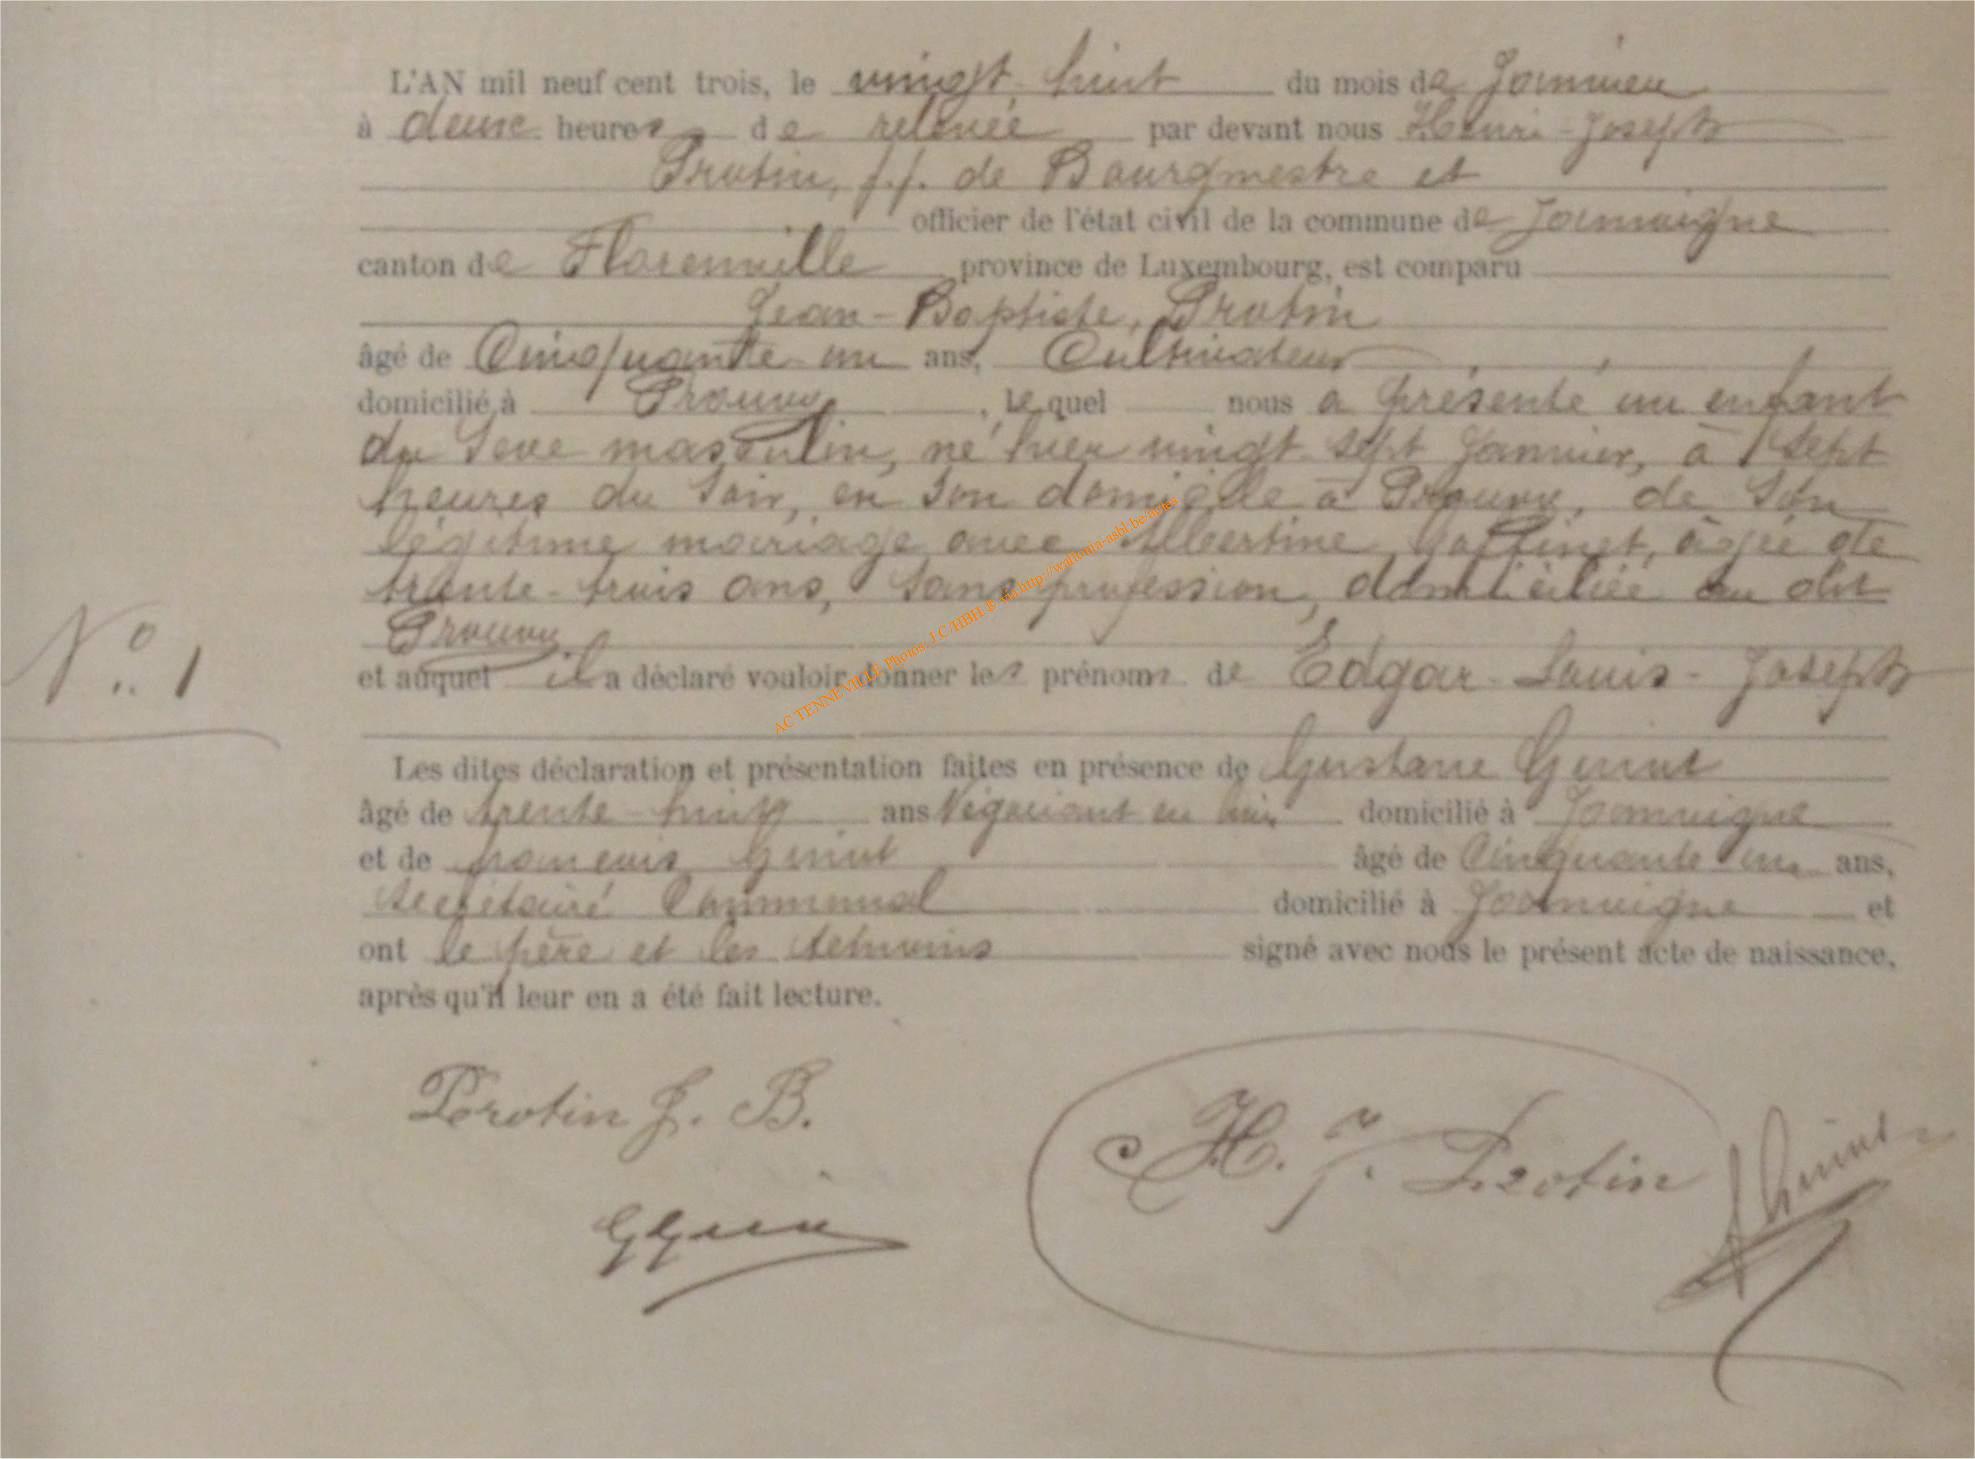 L'AN mil neuf cent trois, le vingt-huit du mois de Janvier
à deux heures de relevée par devant nous Henri-Joseph
Protin, f.f. de Bourgmestre et
officier de l'état civil de la commune de Jamoigne
canton de Florenville province de Luxembourg, est comparu
Jean-Baptiste, Protin
âgé de Cinquante-un ans, Cultivateur
domicilié à Prouvy, lequel nous a présenté un enfant
du sexe masculin, né hier vingt-sept Janvier, à sept
heures du soir, en son domicile à Prouvy, de son
légitime mariage avec Albertine Goffinet, âgée de
trente-trois ans, sans profession, domiciliée au dit
Prouvy
N° 1
et auquel il a déclaré vouloir donner les prénoms de Edgar-Louis-Joseph
Les dites déclaration et présentation faites en présence de Gustave
âgé de trente-huit ans Négociant en domicilié à Jamoigne
et de François âgé de Cinquante-un ans,
secrétaire Communal domicilié à Jamoigne et
ont le père et les témoins signé avec nous le présent acte de naissance,
après qu'il leur en a été fait lecture.
Protin J. B.
H. J. Protin
AC TENNEVILLE Photos: J.C/HBH @ via http://wallonia-asbl.be/actes